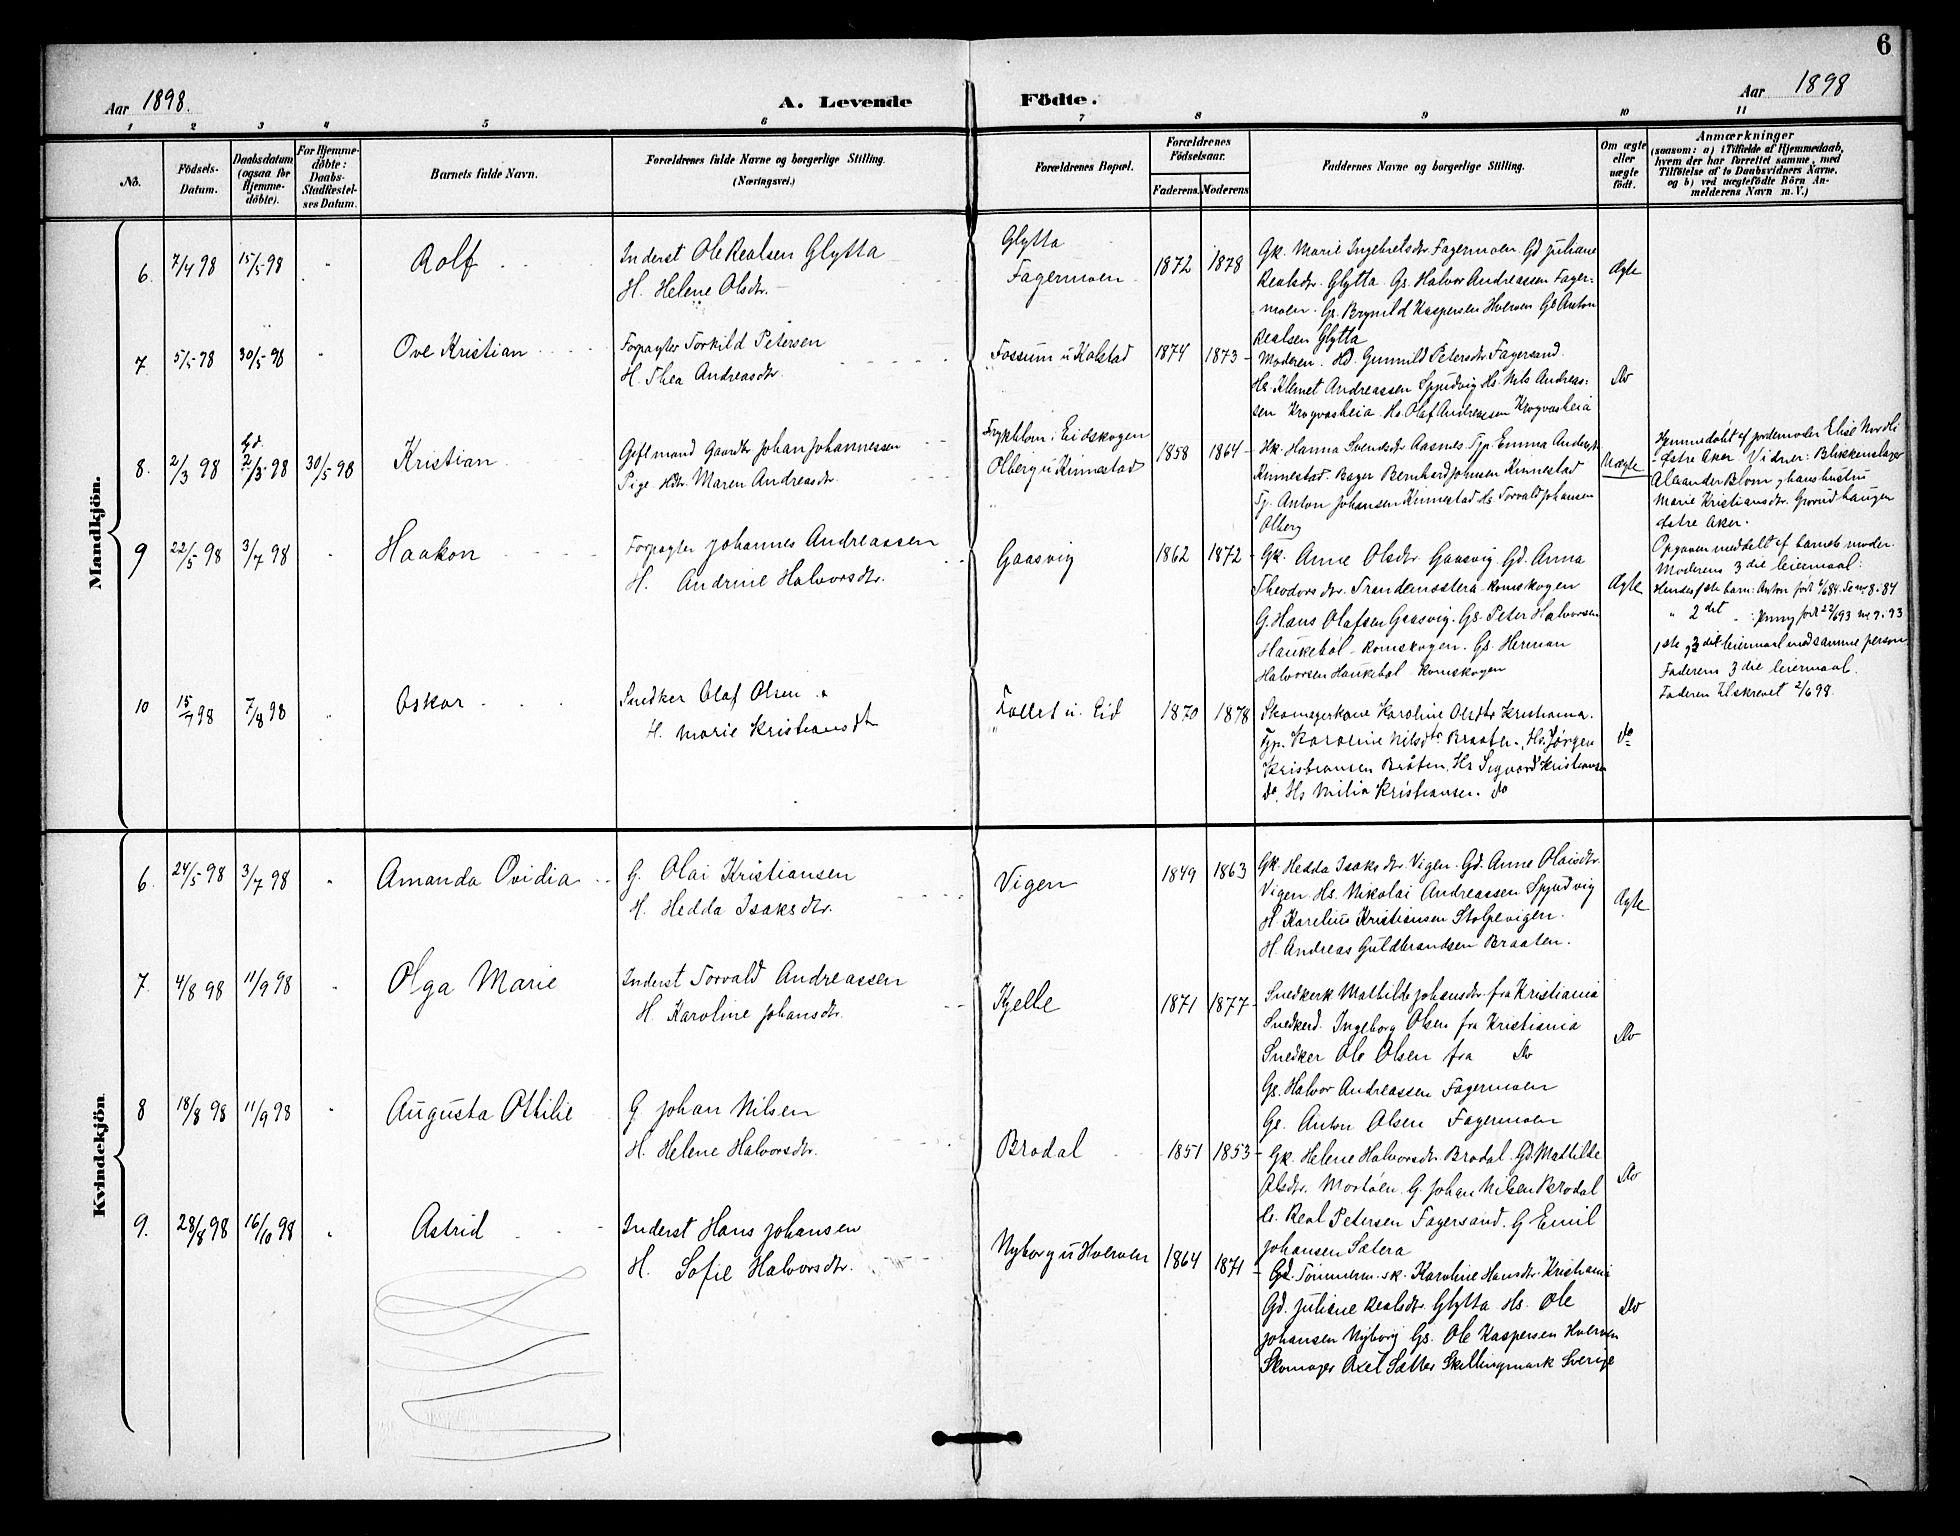 6
Aar 1898.
A. Levende Födte.
Aar 1898
1 2 3 4 5 6 7 8 9 10 11
No.
Födsels-Datum.
Daabsdatum (ogsaa for Hjemme-döbte).
For Hjemme-döbte: Daabs-Stadfæstel-ses Datum.
Barnets fulde Navn.
Forældrenes fulde Navne og borgerlige Stilling. (Næringsvei.)
Forældrenes Bopæl.
Forældrenes Födselsaar.
Faderens. Moderens
Faddernes Navne og borgerlige Stilling.
Om ægte eller uægte født.
Anmærkninger
(saasom: a) i Tilfælde af Hjemmedaab,
hvem der har forrettet samme, med
Tilföielse af to Daabsvidners Navne,
og b) ved uægtefödte Börn An-
melderens Navn m. V.)
Mandkjön.
6. 7/4 98 15/5 98 " Rolf
Inderst Ole Realsen Glytta
H. Helene Olsdtr.
Glytta
Fagermoen
1872 1878
Gk. Marie Ingebretsdtr. Fagermoen Gd Juliane
Realsdtr. Glytta. Gs. Halvor Andreassen Fager-
moen. Gs. Brynild Kaspersen Hverven Gs Anton
Realsen Glytta
Ægte
7 5/5 98 30/5 98 " Ove Kristian
Forpagter Torkild Petersen
H. Thea Andreasdtr.
Fossum u Kolstad
1874 1873
Moderen. Hd. Gunnild Petersdtr Fagersand.
Hs. Klemet Andreassen Spydvig Hs. Nils Andreas-
sen Krogvasheia. Hs. Olaf Andreassen Krogvasheia
Do
8. 2/3 98 hjd. 2/3 98 30/5 98 Kristian
Gift mand Gaardbr Johan Johannessen
Pige Hdtr. Maren Andreasdtr.
Eidskogen
Olberg u Kinnestad
1858 1864
Hk. Hanna Svendsdtr Aasnes. Tjp. Emma Andersdtr
Kinnestad. Bager Bernhard Johnsen Kinnestad
Tj. Anton Johansen Kinnestad Hs. Torvald Johansen
Olberg
Uægte
Hjemmedøbt af jordemoder Elise Nordli
Østre Aker. Vidner: Blikkenslager
Alexander Blom & hans hustru
Marie Kristiansdtr. Grorudhaugen
Østre Aker.
Opgaven meddelt af barnets moder.
Moderens 3die leiermaal:
Hendes 1ste barn: Anton født 4/6 84
" 2det " : Jenny født 22/6 93
1ste & 3die leiermaal med samme person
Faderens 3die leiermaal.
Faderen tilskrevet 2/6 98.
9 22/5 98 3/7 98 " Haakon
Forpagter Johannes Andreassen
H. Andrine Halvorsdtr.
Gaasvig
1862 1872
Gk. Anne Olsdtr. Gaasvig Gd. Anna
Theodorsdtr. Trandemsætera Romskogen
G. Hans Olafsen Gaasvig. Gs. Peter Halvorsen
Haukebøl - Romskogen. Gs. Herman
Halvorsen Haukebøl Romskogen
Ægte
10 15/7 98 7/8 98 " Oskar
Snedker Olaf Olsen &
H. Marie Kristiansdtr
u. Eid
1870 1878
Skomagerkone Karoline Olsdtr Kristiania.
Tjp. Karoline Nilsdtr Braaten. Hs. Jørgen
Kristiansen Bråten. Hs Sigvard Kristiansen
do, Hs Milia Kristiansen. do
do
Kvindekjön.
6. 24/5 98 3/7 98 " Amanda Ovidia
G. Olai Kristiansen
H. Hedda Isaksdtr.
Vigen
1849 1863
Gk. Hedda Isaksdtr Vigen. Gd. Anne Olaisdtr.
Vigen Hs. Nikolai Andreassen Spydvig
H Karelius Kristiansen Stolpevigen.
H. Andreas Guldbrandsen Braaten.
Ægte
7. 4/8 98 11/9 98 " Olga Marie
Inderst Torvald Andreassen
H. Karoline Johansdtr.
Kjelle
1871 1877
Snedkerk Mathilde Johansdtr. fra Kristiania
Snedkerd. Ingeborg Olsen fra Kristiania
Snedker Ole Olsen fra Do
Gs. Halvor Andreassen Fagermoen
Gs. Anton Olsen Fagermoen
Do
8 18/8 98 11/9 98 " Augusta Ottilie
G Johan Nilsen
H. Helene Halvorsdtr.
Brodal
1851 1853
Gk. Helene Halvorsdtr. Brodal. Gd. Mathilde
Olsdtr. Mortøen. G. Johan Nilsen Brodal
Gs. Real Petersen Fagersand. G Emil
Johansen Sætera
Do
9. 28/8 98 16/10 98 " Astrid
Inderst Hans Johansen
H. Sofie Halvorsdtr.
Nyborg u Hverven
1864 1871
Gd. Tømmerm.sk. Karoline Hansdtr. Kristiania
Gd. Juliane Realsdtr. Glytta Hs. Ole
Johansen Nyborg Gs. Ole Kaspersen Hverven
Skomager Axel Sætter Skillingmark Sverige
Do